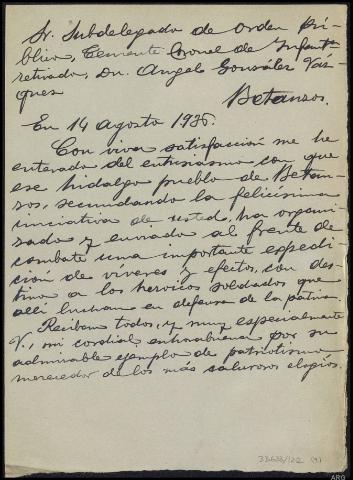 Sr. Subdelegado de Orden Pú-
blico, Teniente Coronel de Infantª
retirado, Dn. Angel González Vaz-
quez
Betanzos.
En 14 agosto 1936.
Con viva satisfacción me he
enterado del entusiasmo con que
ese hidalgo pueblo de Betan-
zos, secundando la felicísima
iniciativa de usted, ha organi-
zado y enviado al frente de
combate una importante expedi-
ción de víveres y efectos, con des-
tino a los heroicos soldados que
allí luchan en defensa de la patria.
Reciban todos, y muy especialmente
V., mi cordial enhorabuena por su
admirable ejemplo de patriotismo
merecedor de los más calurosos elogios.
ARG